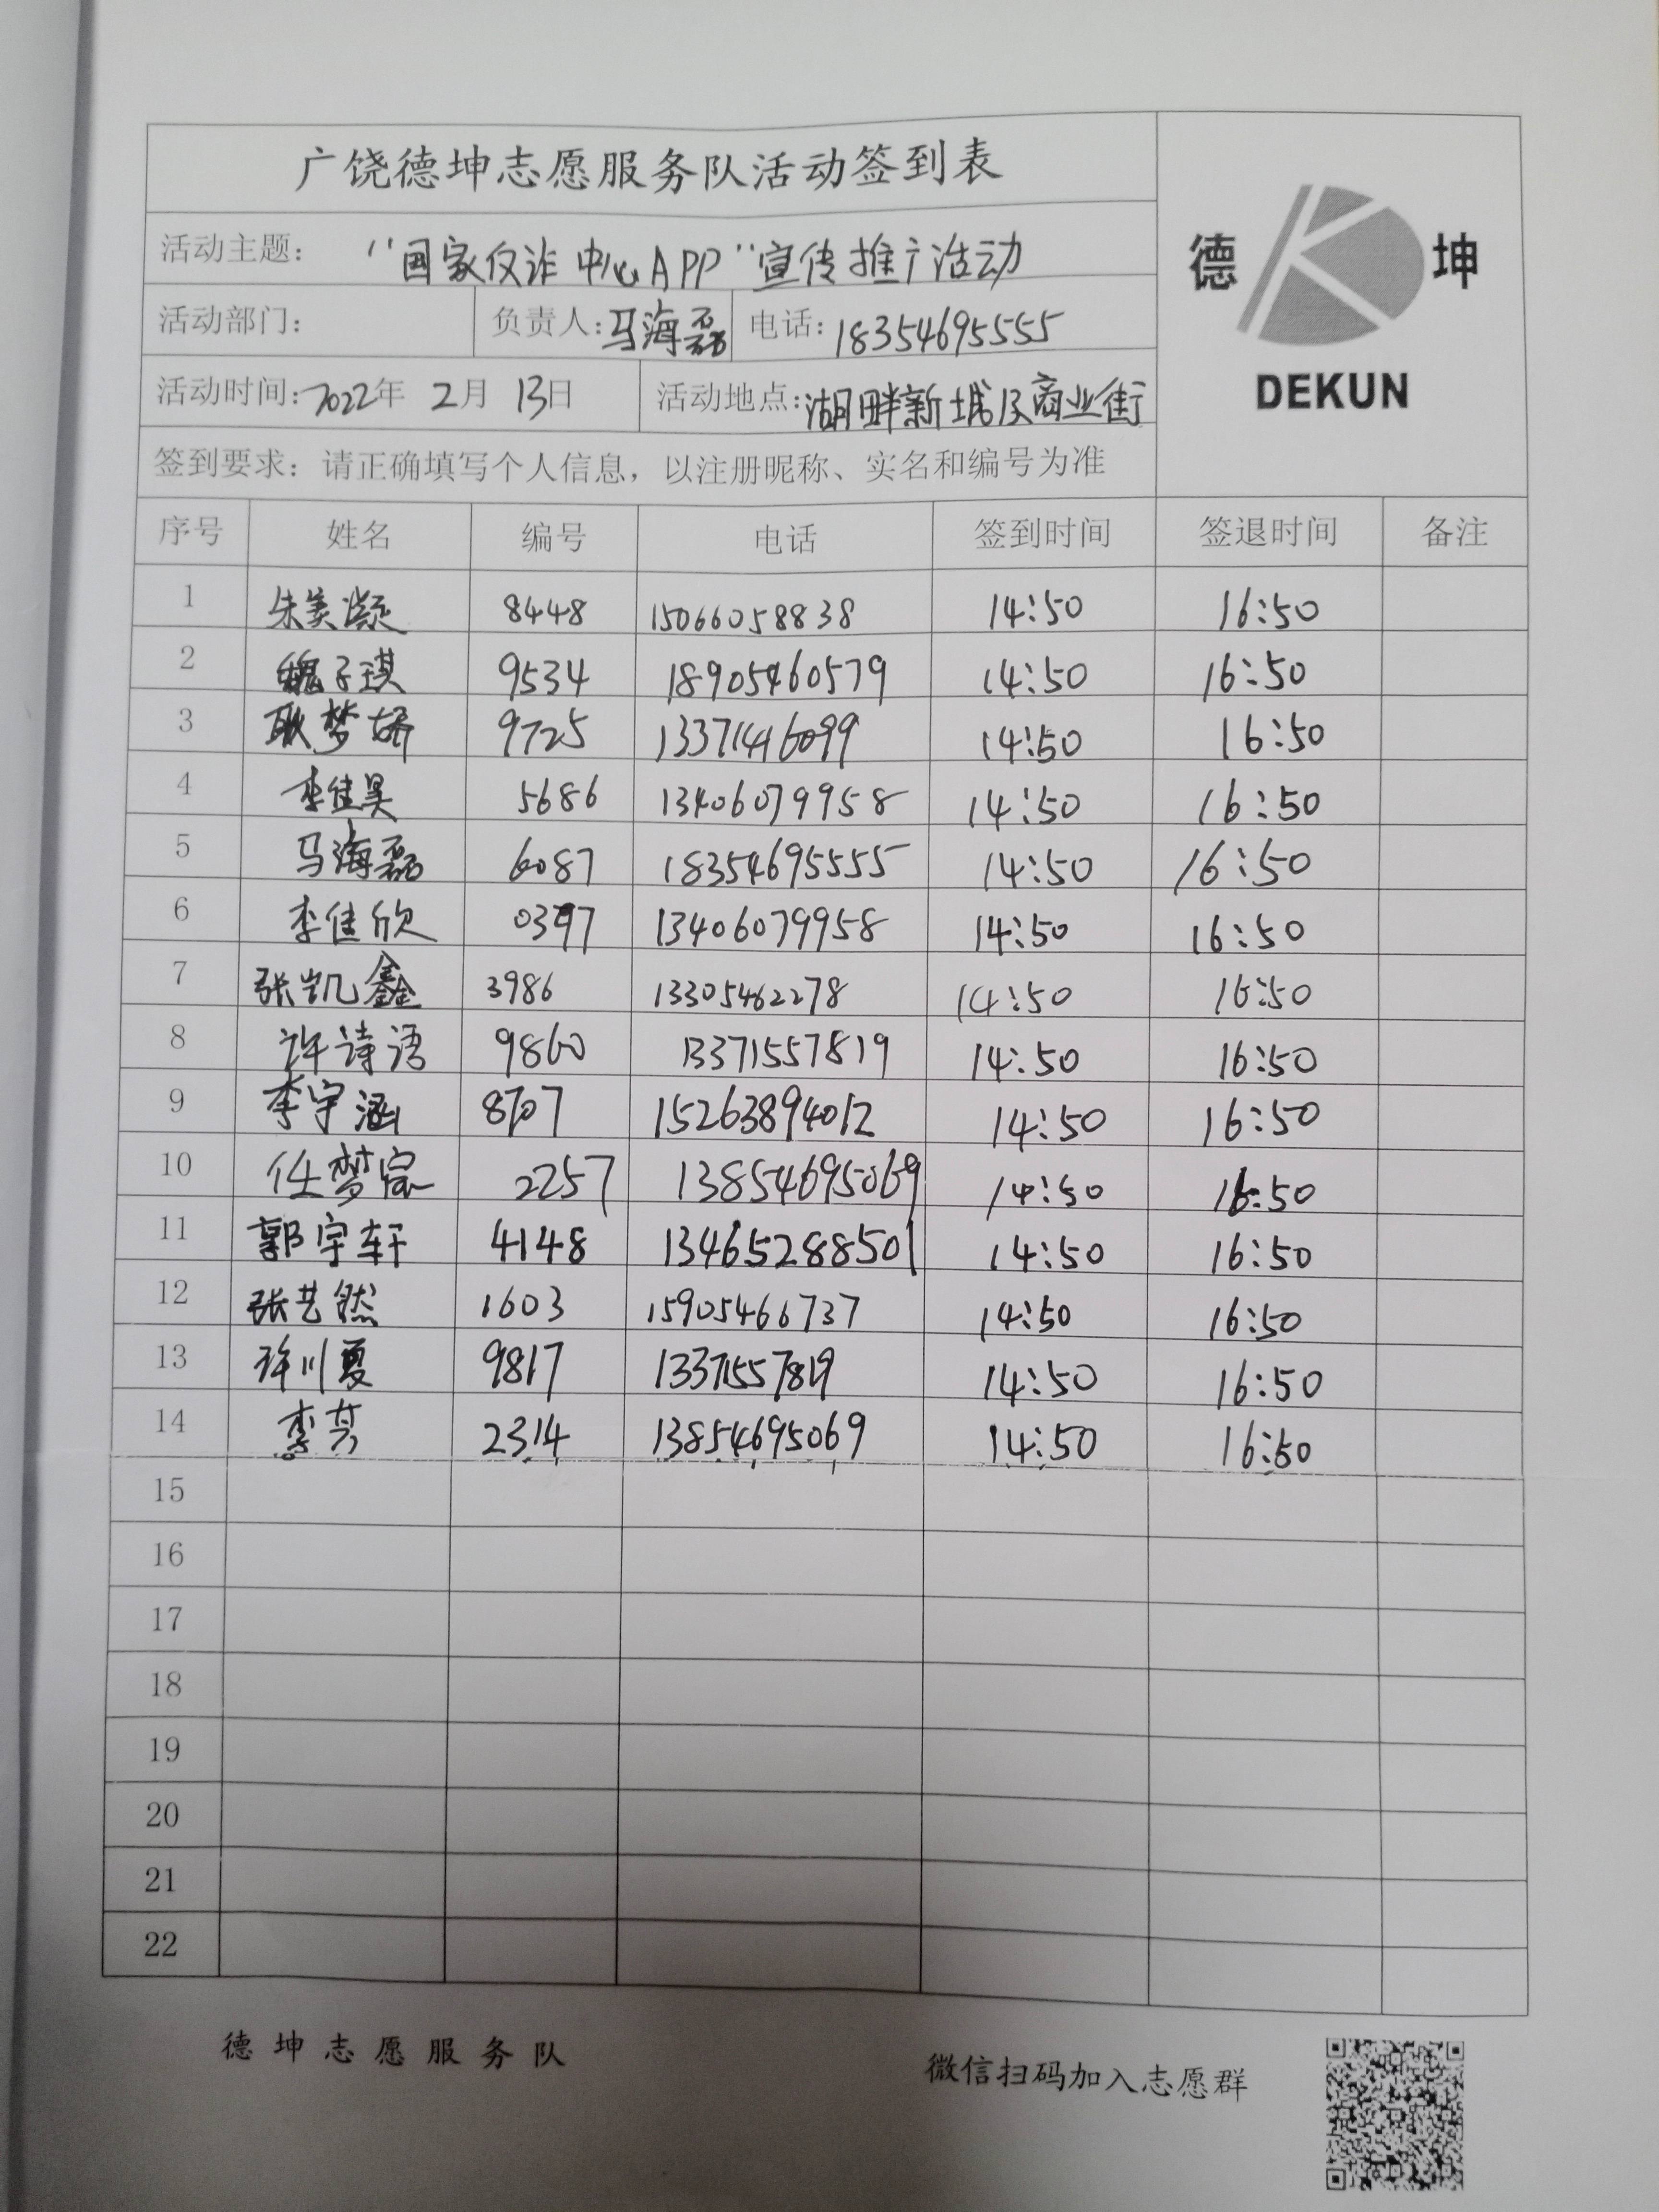 广饶德坤志愿服务队活动签到表
德 坤
DEKUN
活动主题： “国家反诈中心APP”宣传推广活动
活动部门： 负责人：马海磊 电话：18354695555
活动时间：2022年 2月 13日 活动地点：湖畔新城及商业街
签到要求：请正确填写个人信息，以注册昵称、实名和编号为准
序号 姓名 编号 电话 签到时间 签退时间 备注
1 朱美凝 8448 15066058838 14:50 16:50
2 魏子琪 9534 18905460579 14:50 16:50
3 耿梦娇 9725 13371416099 14:50 16:50
4 李佳昊 5686 13406079958 14:50 16:50
5 马海磊 6087 18354695555 14:50 16:50
6 李佳欣 0397 13406079958 14:50 16:50
7 张凯鑫 3986 13305462278 14:50 16:50
8 许诗语 9860 13371557819 14:50 16:50
9 李宇涵 8707 15263894012 14:50 16:50
10 任梦 2257 13854695069 14:50 16:50
11 郭宇轩 4148 13465288501 14:50 16:50
12 张艺然 1603 15905466737 14:50 16:50
13 许川夏 9817 13371557819 14:50 16:50
14 李芸 2314 13854695069 14:50 16:50
15
16
17
18
19
20
21
22
德坤志愿服务队
微信扫码加入志愿群